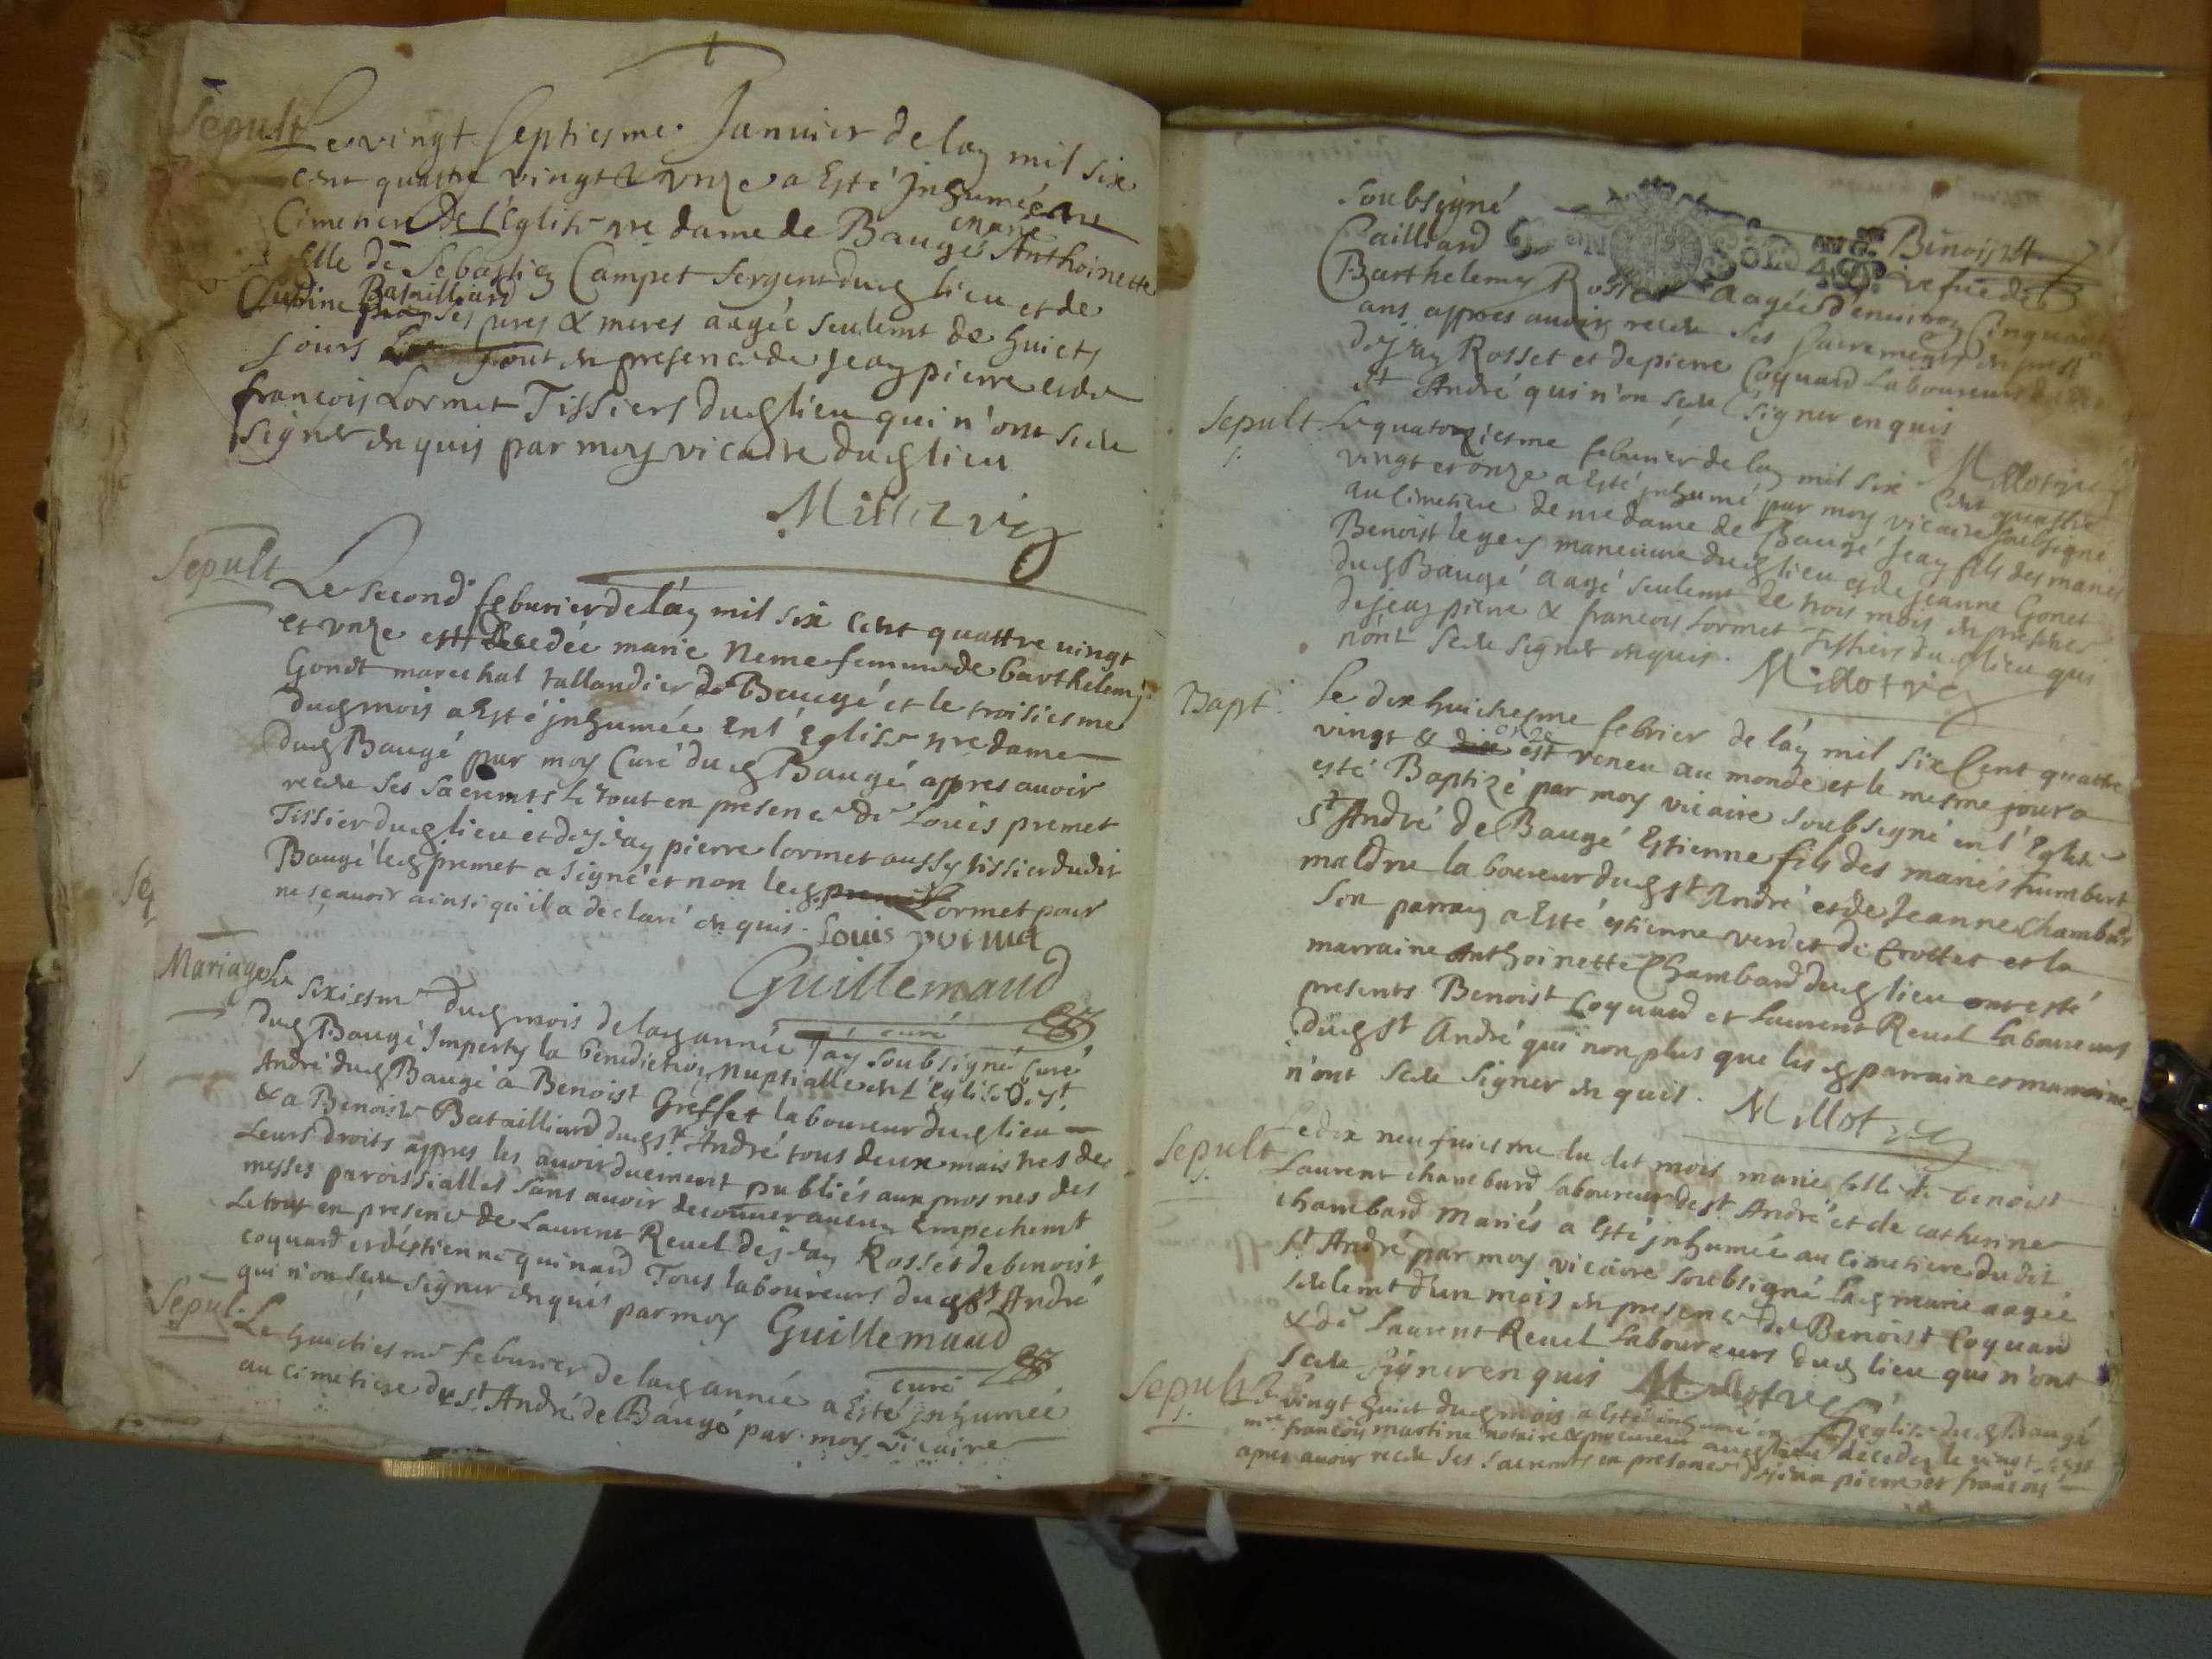 Sepult Le vingt septiesme Januier de lan mil six
cent quattre vingt & unze a Esté jnhumée au
Cimetiere De l'Eglise nre dame de Baugé Anthoinette
marie
fille de Sebastien Campet sergent dud lieu et de
Claudine Batailliard ses peres & meres aagée seulemt de huict
Jours Le tout en presence de Jean pierre et de
françois Lormet Tissiers dud lieu qui n'ont sceu
signer enquis par moy vicaire dud lieu
Millot vic
Sepult Le second feburier de lan mil six cent quattre vingt
et unze est decedée marie Neme femme de barthelemy
Gonet mareschal tallandier de Baugé et le troisiesme
dud mois a Esté jnhumée En l'Eglise nre dame
dud Baugé par moy Curé dud Baugé appres auoir
receu ses sacremts le tout en presence de Louis premet
Tissier dud lieu et de Jean pierre lormet aussy tissier dudit
Baugé led premet a signé et non led Lormet pour
ne sçauoir ainsi qu'il a declaré enquis. Louis premet
Guillemaud
curé
Mariage Le sixiesme dud mois de lad année J'ay soubsigné Curé
dud Baugé Imparty la benediction nuptialle en l'Eglise de St
André dud Baugé a Benoist Greffet laboureur dud lieu
& a Benoiste Batailliard dud St André tous deux maistres de
Leurs droits appres les auoir duement publiés aux prosnes des
messes paroissialles sans auoir decouuer aucun Empechemt
Le tout en presence de Laurent Reuel de Jean Rosset de benoist
coquard et d'éstienne quinard Tous laboureurs dud St André
qui n'on sceu signer enquis par moy Guillemaud
curé
Sepul. Le huictiesme feburier de lad année a Esté jnhumée
au cimetiere de St André de Baugé par moy vicaire
soubsigné Benoiste
Cailliard vefue de
Barthelemy Rosset aagée d'enuiron Cinquante
ans appres auoir receu ses sacrements en presce
de Jean Rosset et de pierre Coquard Laboureurs
St André qui n'on sceu signer enquis
Millot vic
Sepult Le quatorziesme feburier de lan mil six Cent quattre
vingt et onze a Esté jnhumé par moy vicaire soubsigné
au Cimetiere de nre dame de Baugé Jean fils des mariés
Benoist manuure dud lieu et de Jeanne Gonet
dud Baugé aagé seulemt de trois mois en presence
de Jean pierre & francois Lormet Tissiers dud lieu qui
n'ont sceu signer enquis. Millot vic
Bapt. Le dix huictiesme febrier de lan mil six Cent quattre
onze
vingt & est veneu au monde et le mesme jour a
esté Baptizé par moy vicaire soubsigné en l'Eglise
St André de Baugé Estienne fils des mariés humbert
maldru laboureur dud St André et de Jeanne Chambard
son parrain a Esté estienne verdet de Crottet et la
marraine Anthoinette Chambard dud lieu ont esté
presents Benoist Coquard et Laurent Reuel Laboureurs
dud St André qui non plus que les d parrain et marraine
n'ont sceu signer enquis. Millot vic
Sepult Le dix neufuiesme du dit mois marie fille de benoist
Laurent chambard laboureur de St André et de catherine
chambard mariés a Esté jnhumée au cimetiere dudit
St André par moy vicaire soubsigné lad marie aagée
seulemt d'un mois en presence de Benoist Coquard
& de Laurent Reuel Laboureurs dud lieu qui n'ont
sceu signer enquis Millot vic
Sepult Le vingt huict dud mois a Esté inhumé en l'eglise dud Baugé
mre françois martine notaire & procureur aud lieu decedé le vingt sept
apres auoir receu ses sacremts en presence de Jean pierre et françois